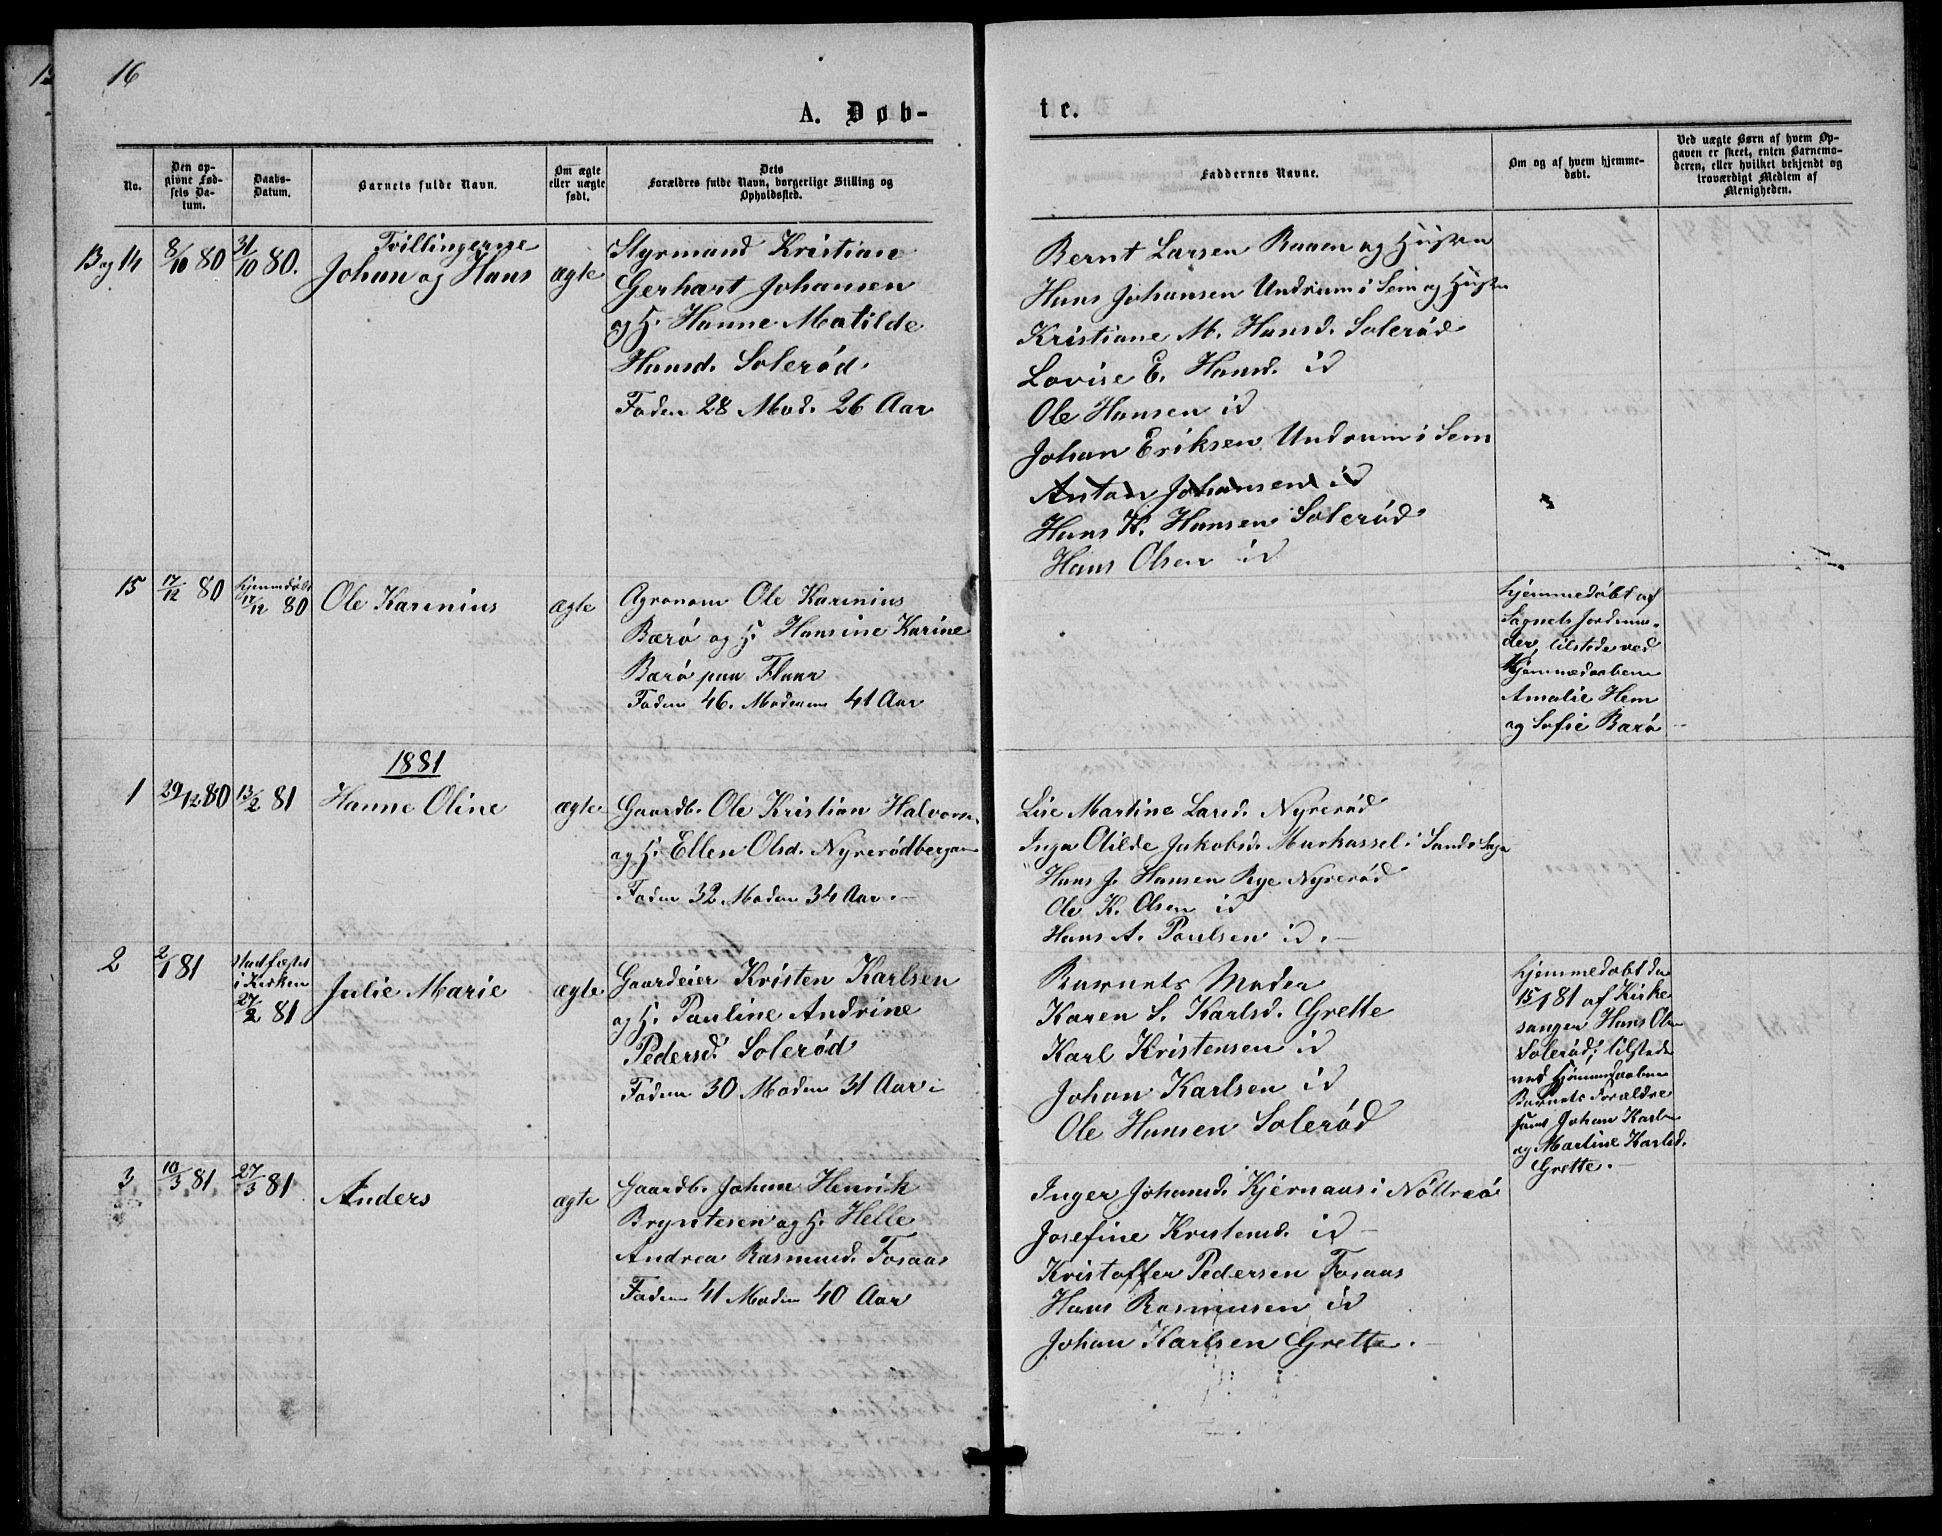 16
A. Døb-
te.
No.
Den op-
givne Fød-
sels Da-
tum.
Daabs-
Datum.
Barnets fulde Navn.
Om ægte
eller uægte
født.
Dets
Forældres fulde Navn, borgerlige Stilling og
Opholdssted.
Faddernes Navne.
Om og af hvem hjemme-
døbt.
Ved uægte Børn af hvem Op-
gaven er skeet, enten Barnemo-
deren, eller hvilket bekjendt og
troværdigt Medlem af
Menigheden.
13 og 14
8/10 80
31/10 80.
Tvillingerne
Johan og Hans
ægte
Styrmand Kristian
Gerhart Johansen
og H. Hanne Matilde
Hansd. Solerød.
Faden 28 Mod. 26 Aar
Bernt Larsen Raaen og Hustru
Hans Johansen Undrum i Sem og Hustru
Kristiane M. Hansd. Solerød
Lovise E. Hansd. id
Ole Hansen id
Johan Eriksen Undrum i Sem
Anton Johansen id
Hans K. Hansen Solerød
Hans Olsen id
15
17/12 80
hjemmedøbt
17/12 80
Ole Karenius
ægte
Agronom Ole Karenius
Barø og H. Hansine Karine
Barø paa Flaar
Faden 46. Moderen 41 Aar
hjemmedøbt af
Sognets Jordemo-
der, tilstede ved
Hjemmedaaben
Amalie Hem
og Sofie Barø
1881
1
29/12 80
13/2 81
Hanne Oline
ægte
Gaardb. Ole Kristian Halvors.
og H. Ellen Olsd. Nyrerødbergan
Faden 32 Moden 34 Aar.
Lise Martine Larsd. Nyrerød
Inga Otilde Jakobsd. Murkassel i Sande Sogn
Hans J. Hansen Rye Nyrerød
Ole K. Olsen id
Hans A. Paulsen id.
2
2/1 81
stadfæstet
i Kirken
27/2 81
Julie Marie
ægte
Gaardeier Kristen Karlsen
og H. Pauline Andrine
Pedersd. Solerød
Faden 30 Moden 31 Aar
Barnets Moder
Karen S. Karlsd. Grette
Karl Kristensen id
Johan Karlsen id
Ole Hansen Solerød
hjemmedøbt den
15/1 81 af Kirke
sanger Hans Olsen
Solerød; tilstede
ved Hjemmedaaben
Barnets Forældre
samt Johan Karlsen
og Martine Karlsd.
Grette.
3
10/3 81
27/3 81
Anders
ægte
Gaardb. Johan Henrik
Bryntesen og H. Helle
Andrea Rasmusd. Fosaas
Faden 41 Moden 40 Aar
Inger Johansd. Kjernaas i Nøtterø
Josefine Kristensd. id
Kristoffer Pedersen Fosaas
Hans Rasmusen id
Johan Karlsen Grette.